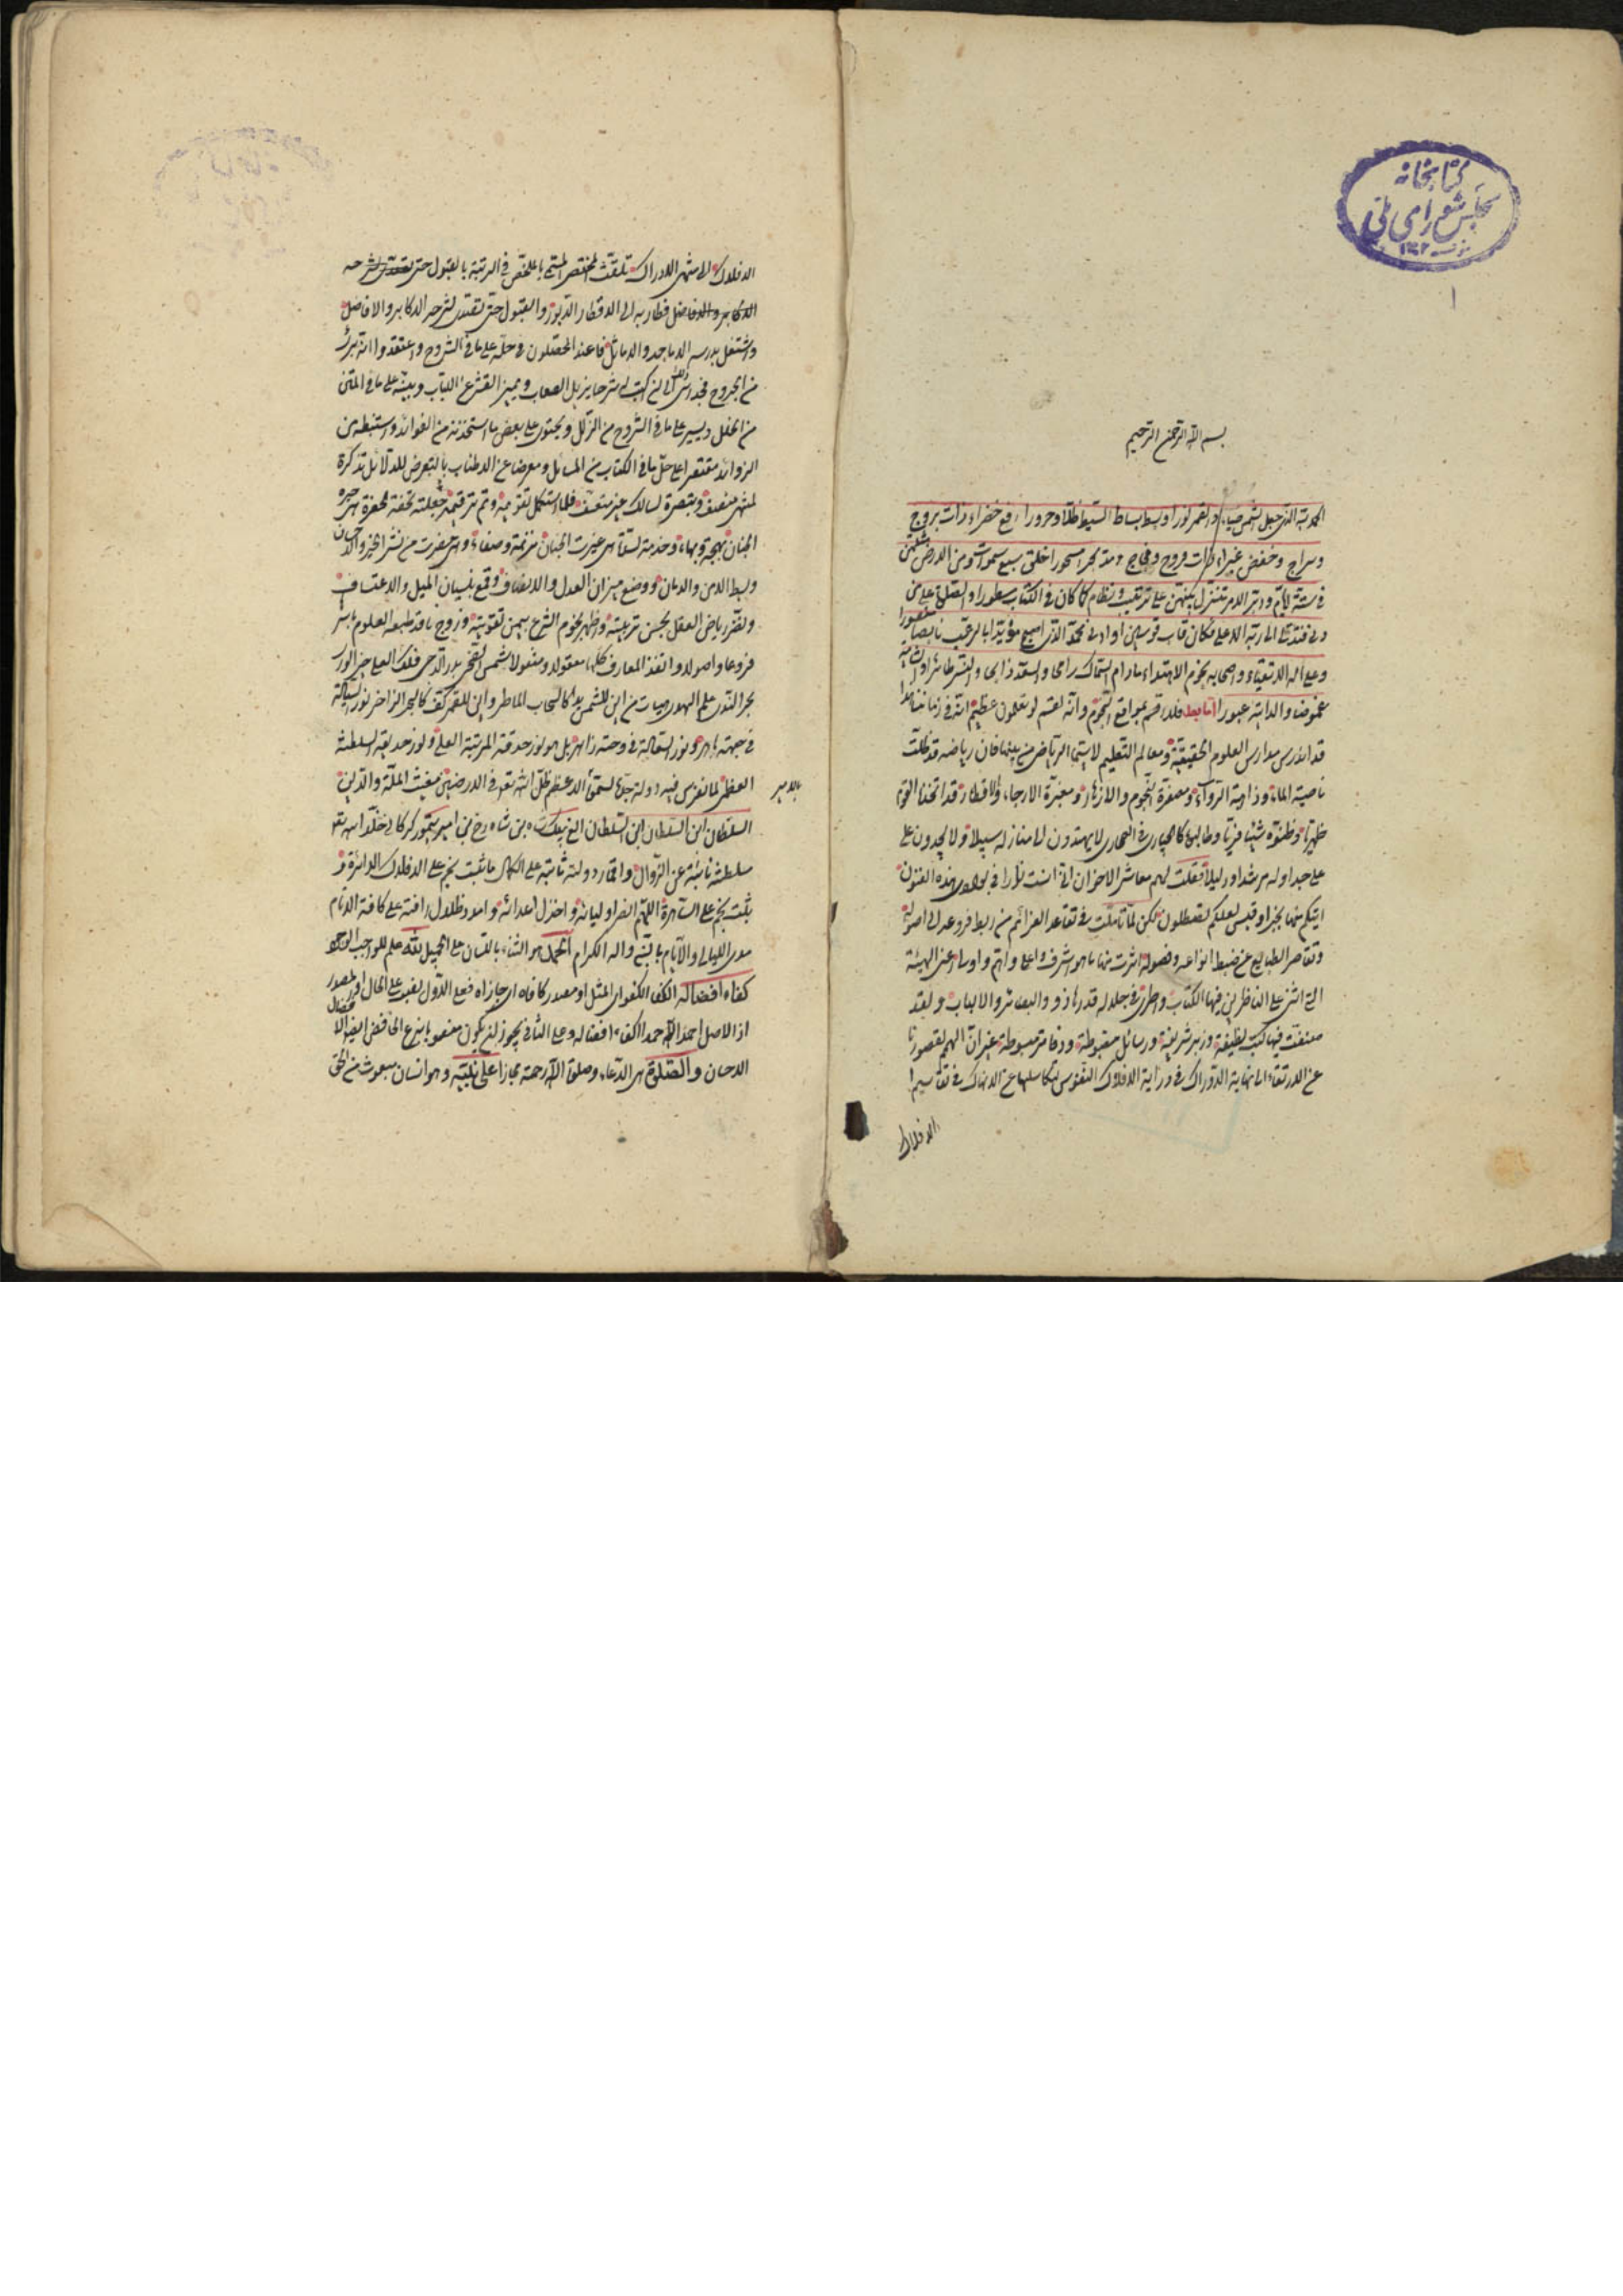 كتابخانه
مجلس شورای ملی
١
بسم الله الرحمن الرحيم
الحمد لله الذى جعل الشمس ضياء والقمر نورا وبسط بساط البسيط ظلا وحرورا رفع خضراء ذات بروج
وسراج وخفض غبراء ذات فروج وفجاج ومد بحر مسجورا خلق سبع سموات ومن الارض مثلهن
فى ستة ايام ودبر الامر يتنزل بينهن على ترتيب ونظام كما كان فى الكتاب مسطورا والصلوة على من
دنى فتدلى الى ربه الاعلى فكان قاب قوسين او ادنى محمد الذى اصبح مؤيدا بالرعب
وعلى اله الاتقياء واصحابه نجوم الاهتداء مادام السماك رامحا والسعد ذابحا والنسر طائرا
غموضا والدابة عبورا اما بعد فلا اقسم بمواقع النجوم وانه لقسم لو تعلمون عظيم انه فى زماننا هذا
قد اندرس مدارس العلوم الحقيقية ومعالم التعليم لا سيما الرياضى من بينها فان رياضه قد ظلت
ناضبة الماء وذاهبة الرواء ومصفرة النجوم والازهار ومغبرة الارجاء والاقطار قد اتخذها القوم
ظهريا وظنوه شيئا فريا وطالبوه كالحيارى فى الصحارى لا يهتدون الى منازله سبيلا ولا يجدون على
على جداوله مرشدا ودليلا فقلت لهم معاشر الاخوان انى انست نارا فى بوادى هذه الفنون
اتيكم منها بخبر او قبس لعلكم تصطلون لكن لما تاملت فى تقاعد العزائم من ربط فروعه الى اصوله
وتقاصر الطبايع عن ضبط انواعه وفصوله اثرت منها ما هو اشرف واعلى واتم واوسار اعنى الهيئة
التى اثنى على الناظرين فيها الكتاب واطرى فى جلالة قدرها ذوو البصائر والالباب ولقد
صنفت فيها كتب لطيفة وزبر شريفة ورسائل مضبوطة ودفاتر مبسوطة غير ان الهمم لقصورها
عن الارتقاء الى نهاية الادراك فى دراية الافلاك النفوس لتكاسلها عن الانهماك فى تقاسيم
الافلاك
الافلاك الى منتهى الادراك تلقت المختصر المسمى بالملخص فى المرتبة بالقبول حتى
الاكابر والافاضل فطار به الى الاقطار الدبور والقبول حتى تصدى لشرحه الاكابر والافاضل
واشتغل بدرسه الاماجد والاماثل فاعتمد المحصلون فى حله على ما فى الشروح واعتقدوا انه برئ
من الجروح فحدانى ذلك الى ان اكتب له شرحا يزيل الصعاب ويميز القشر عن اللباب وينبه على ما فى المتن
من الخلل ويشير على ما فى الشروح من الزلل ويحتوى على بعض ما استحدثته من الفوائد واستنبطه من
الزوائد مقتصرا على حل ما فى الكتاب من المسائل ومعرضا عن الاطناب بالتعرض للدلائل تذكرة
لمنتهى منصف وتبصرة لسالك غير متعسف فلما استكمل تقويمه وتم ترقيمه جعلته تحفة لحضرة هى حيرة
الجنان بهجة وبهاء وخدمة لسدة هى غيرت الجنان نزهة وصفاء وهى حضرت من نشر الخير والاحسان
وبسط الامن والامان ووضع ميزان العدل والانصاف وقمع بنيان الميل والاعتساف
ونضر رياض العقل بحسن تربيته واظهر نجوم الشرع بيمن تقويته وزوج نافد طبعه العلوم باسرها
فروعا واصولا وانقذ المعارف كلها معقولا ومنقولا شمس الضحى بدر الدجى فلك العلى خير الورى
بحر الندى علم الهدى هيهات من اين للشمس يد كالسحاب الماطر واين للقمر كف كالبحر الزاخر نور السيالة
فى جبهته باهر ونور السعالة فى وجنته زاهر بل هو نور حدقة المرتبة العليا ونور حديقة السلطنة
العظمى لما تفرس فيه دولة جده السمى الاعظم ظل الله تعالى فى الارضين مغيث الملة والدين
بالامير
السلطان ابن السلطان ابن السلطان الغ بيك بن شاه رخ بن امير تيمور كركان خلد الله تعالى
سلطنته نائية عن الزوال واقمار دولته ثابتة على الكمال ما ثبت نجم على الافلاك الدائرة و
بثت نجم على الساهرة اللهم انصر اوليائه واخذل اعدائه وامدد ظلال رافته على كافة الانام
مدى الليالى والايام بالنبى واله الكرام الحمد هو الثناء باللسان على الجميل لله علم للواجب الوجود
كفاء افضاله الكفاء الكفو اى المثل او مصدر كافاه اى جازاه فعلى الاول نصب على الحال او المصدر
اذ الاصل احمد الله حمدا كفاء افضاله وعلى الثانى يجوز ان يكون منصوبا بنزع الخافض ايضا الافضال
الاحسان والصلوة هى الدعاء وصلوة الله رحمة مجازا على نبيه وهو انسان مبعوث من الحق